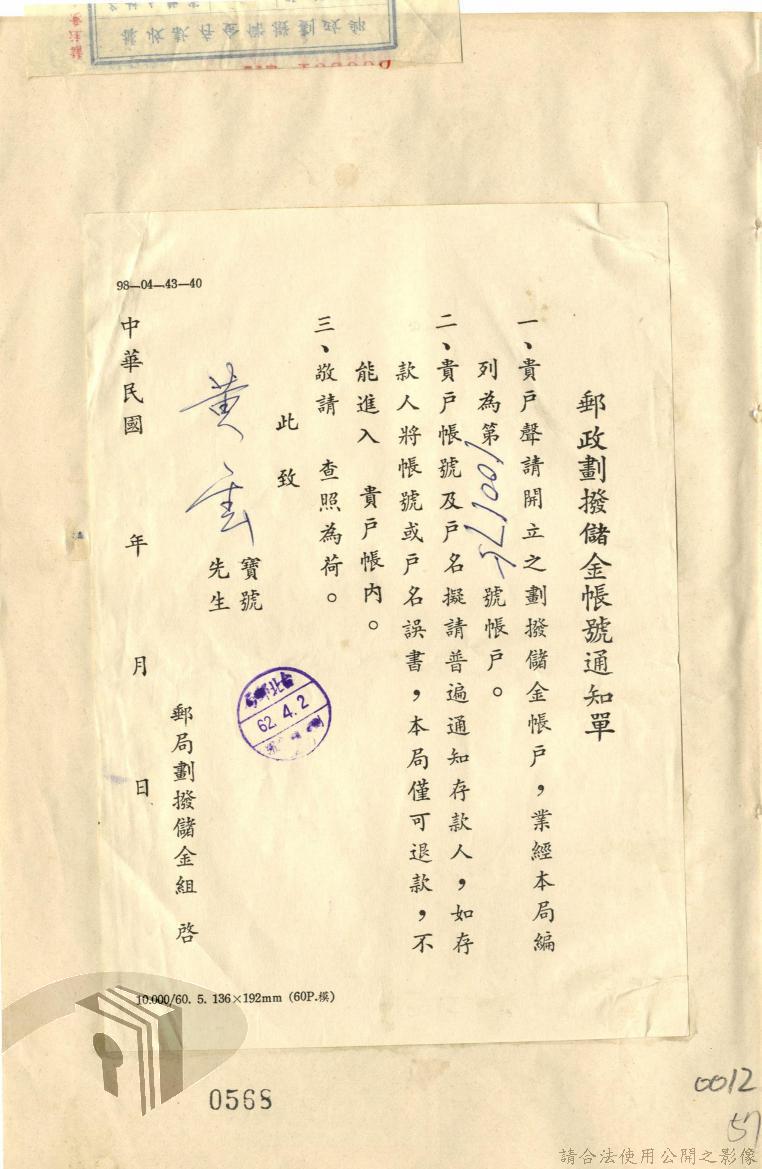 郵政劃撥儲金帳號通知單
一、貴戶聲請開立之劃撥儲金帳戶，業經本局編
列為第 號帳戶。
二、貴戶帳號及戶名擬請普遍通知存款人，如存
款人將帳號或戶名誤書，本局僅可退款，不
能進入 貴戶帳內。
三、敬請 查照為荷。
此致
黃
寶號
先生
62.4.2
郵局劃撥儲金組 啓
中華民國 年 月 日
98—04—43—40
10.000/60. 5. 136×192mm (60P.模)
0568
0012
57
請合法使用公開之影像